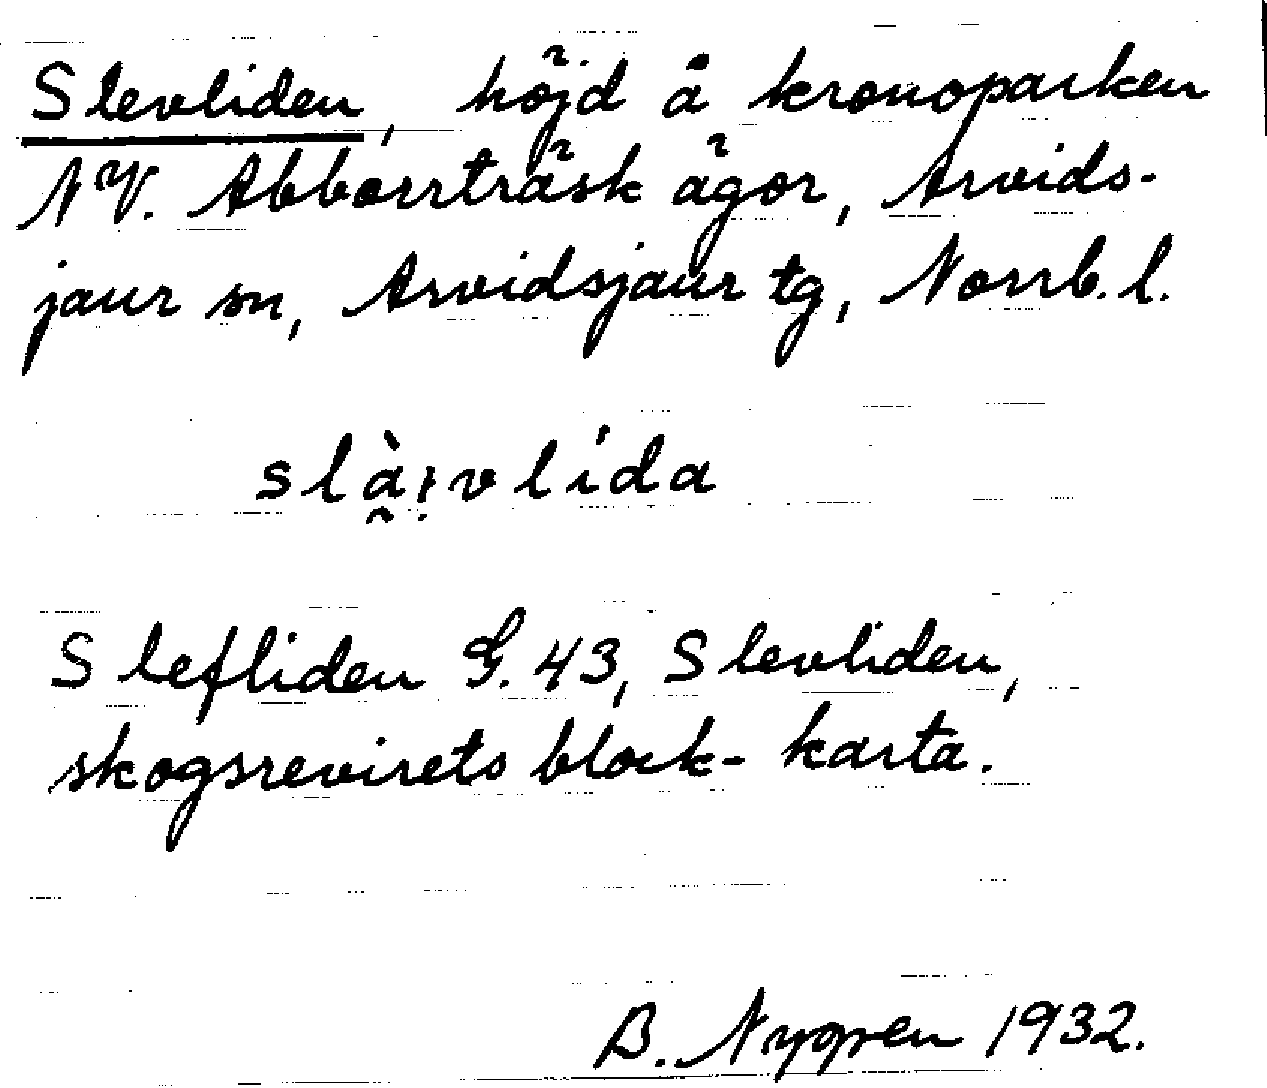 Slevliden, höjd å kronoparken
NV. Abborrträsk ägor, Arvids-
jaur sn, Arvidsjaur tg, Norrb. l.
slà̰ı̣vlída
Slefliden G. 43, Slevliden,
skogsrevirets block-karta.
B. Nygren 1932.